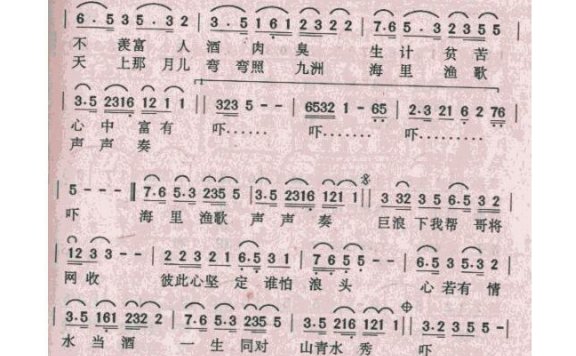 6·5 35·32 | 3·5 161 2322 | 7·6 5·3 2355 |
不羡富人酒肉臭 生计贫苦
天上那月儿弯弯照九洲 海里渔歌
3·5 2316 1211 || 323 5 - - | 6532 1 - 65 | 2·3 21 6 2 76 |
心中富有 吓…… 吓…… 吓……
声声奏
5 - - - || 7·6 5·3 235 5 | 3·5 2316 121 1 || 3 32 35 6·5 32 |
吓 海里渔歌声声奏 巨浪下我帮哥将
12 3 3 - - | 2 2 3 2 1 6·5 31 | 7 6 5 5 - - | 6·5 35·3 2 |
网收 彼此心坚定谁怕浪头 心若有情
3·5 161 232 2 | 7·6 5·3 235 5 | 3·5 216 121 1 || 3·2 3 5 5 - |
水当酒 一生同对山青水秀 吓